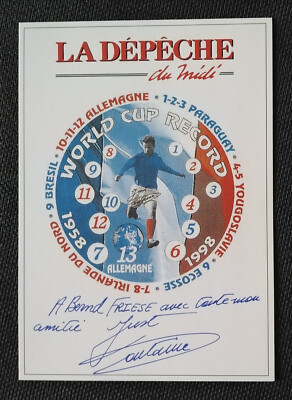 LA DÉPÊCHE
du midi
9 BRESIL • 10-11-12 ALLEMAGNE • 1-2-3 PARAGUAY • 4-5 YOUGOSLAVIE • 6 ECOSSE • 7-8 IRLANDE DU NORD •
WORLD CUP RECORD
1958
1998
8
1
9
2
11
7
3
10
4
12
5
6
13
ALLEMAGNE
A Bernd FRIESE avec toute mon
amitié Just
Fontaine